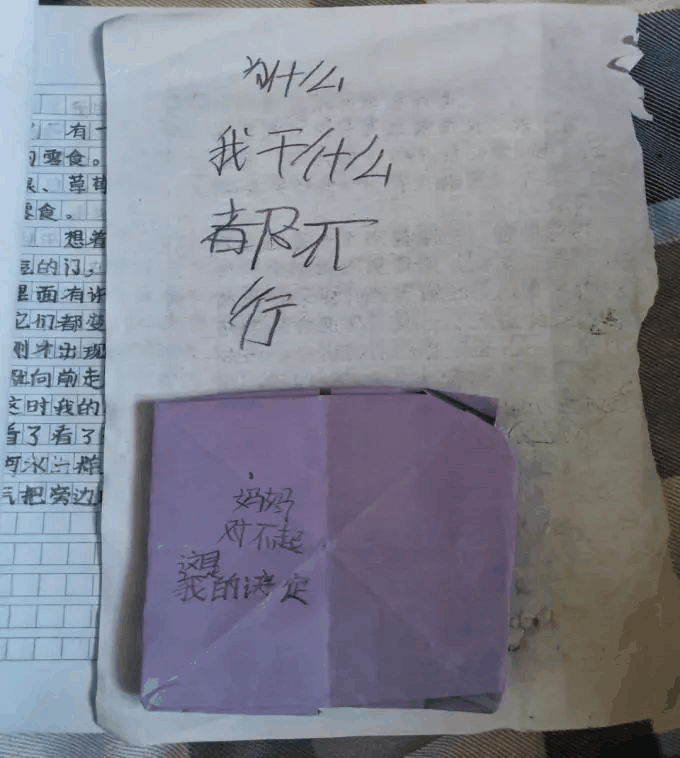 为什么
我干什么
都不
行
妈妈
对不起
这是
我的决定
有一
零食。
、草莓
零食。
想着
的门，
里面有许
它们都变
刚才出现
向前走
这时我的
看了看了
气把旁边